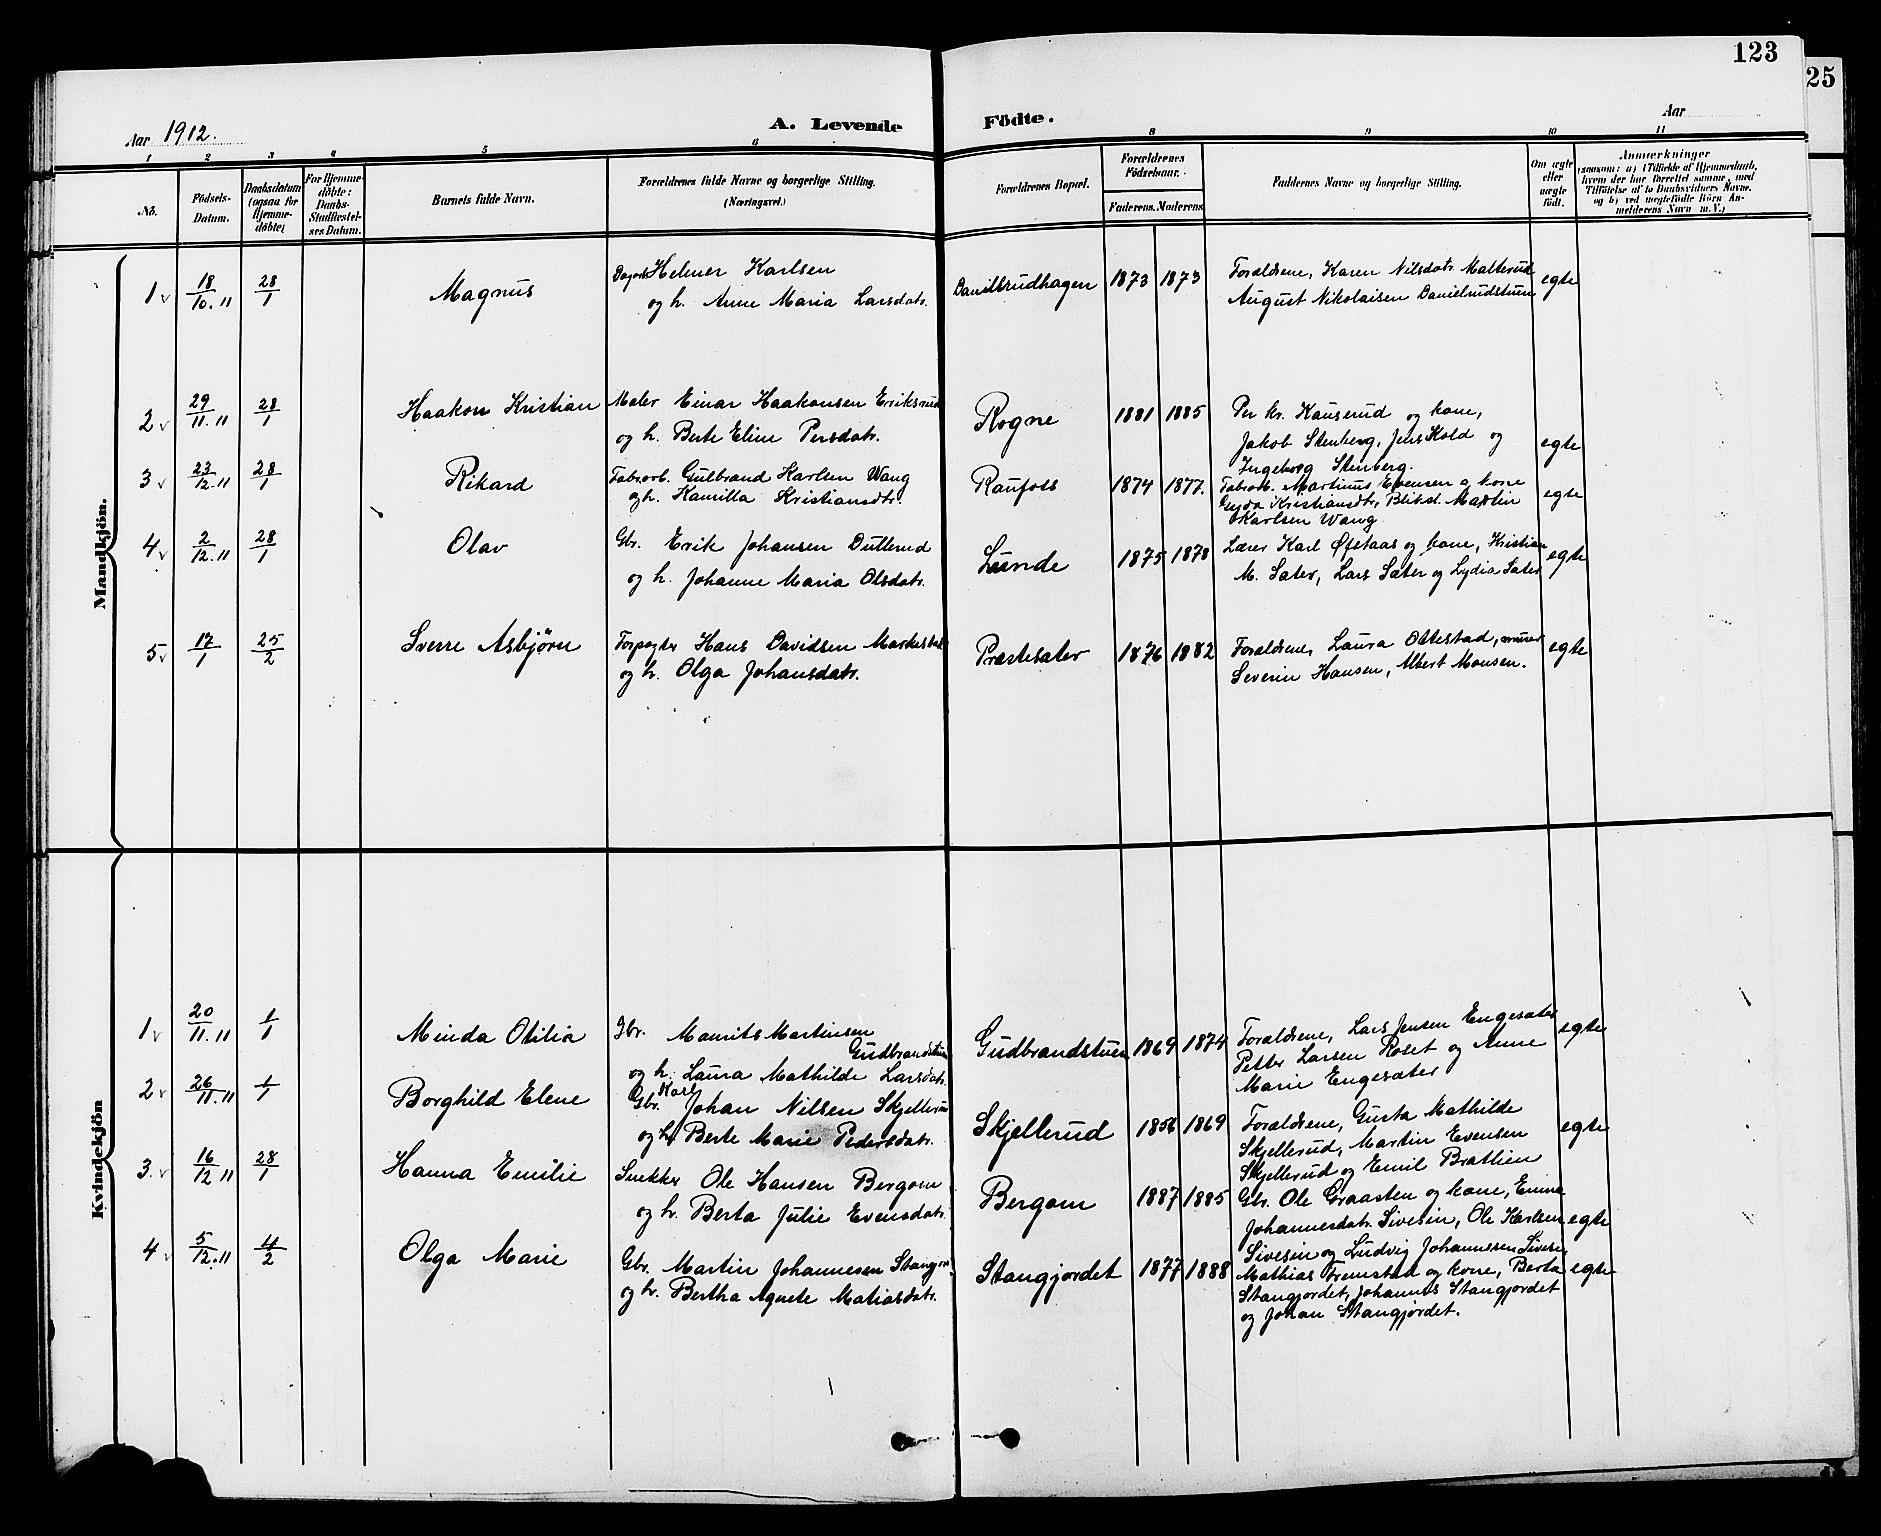 123
25
Aar 1912.
A. Levende Födte.
Aar
1 2 3 4 5 6 8 9 10 11
No.
Födsels-
Datum.
Daabsdatum
(ogsaa for
Hjemme-
döbte)
For Hjemme-
döbte:
Daabs-
Stadfæstel-
ses Datum.
Barnets fulde Navn.
Forældrenes fulde Navne og borgerlige Stilling.
(Næringsvei.)
Forældrenes Bopæl.
Forældrenes
Födselsaar.
Faderens. Moderens
Faddernes Navne og borgerlige Stilling.
Om ægte
eller
uægte
födt.
Anmærkninger
(saasom: a) i Tilfælde af Hjemmedaab,
hvem der har forrettet samme, med
Tilföielse af to Daabsvidners Navne.
og b) ved uægtefödte Börn An-
melderens Navn m.V.)
Mandkjön.
1 v 18/10.11 28/1 Magnus
Dagarb. Helmer Karlsen
og h. Anne Maria Larsdatr.
Danilsrudhagen 1873 1873
Forældrene, Karen Nilsdatr. Malterud
August Nikolaisen Danielrudstuen
egte
2 v 29/11.11 28/1 Haakon Kristian
Maler Einar Haakonsen Eriksrud
og h. Berte Eline Persdatr.
Rogne 1881 1885
Per kr. Kauserud og kone,
Jakob Stenberg, Jens Kold og
Ingeborg Stenberg.
egte
3 v 23/12.11 28/1 Rikard
Fabr.arb. Gulbrand Karlsen Wang
og h. Kamilla Kristiansdtr.
Raufoss 1874 1877.
Fabrarb. Martinus Evensen og kone
Gyda Kristiansdtr, Bliksl. Martin
Karlsen Wang
egte
4 v 2/12.11 28/1 Olav
Gbr. Erik Johansen Dutterud
og h. Johanne Maria Olsdatr.
Lunde 1875 1878
Lærer Karl Øfstaas og kone, Kristian
M. Sater, Lars Sæter og Lydia Sater
egte
5 v 17/1 25/2 Sverre Asbjørn
Forpagter Hans Davidsen
og h. Olga Johansdatr.
Præstesæter 1876 1882
Forældrene, Laura Ottestad, murer
Severin Hansen, Albert Monsen.
egte
Kvindekjön
1 v 20/11.11 1/1 Minda Otilia
Gbr. Maurits Martinsen
Gudbrandstuen
og h. Laura Mathilde Larsdatr.
Gudbrandstuen 1869 1874
Forældrene, Lars Jensen Engesæter
Petter Larsen Roset og Anne
Marie Engesæter
egte
2 v 26/11.11 1/1 Borghild Elene
Gbr. Karl Johan Nilsen Skjellerud
og h. Berte Marie Pedersdatr.
Skjellerud 1856 1869
Forældrene, Gusta Mathilde
Skjellerud, Martin Evensen
Skjellerud og Emil Bratlien
egte
3. v 16/12 11 28/1 Hanna Emilie
Snekker Ole Hansen Bergom
og h. Berta Julie Evensdatr.
Bergom 1887 1885
Gbr. Ole Graasten og kone, Emma
Johannesdatr. Sivesin, Ole Karlsen
Sivesin og Ludvig Johannesen Sivesin
egte
4 v 5/12.11 4/2 Olga Marie
Gbr. Martin Johannesen Stangjor.
og h. Bertha Agnete Matiasdatr.
Stangjordet 1877 1888
Mathias Fremstad og kone, Berta
Stangjordet, Johannes Stangjordet
og Johan Stangjordet.
egte